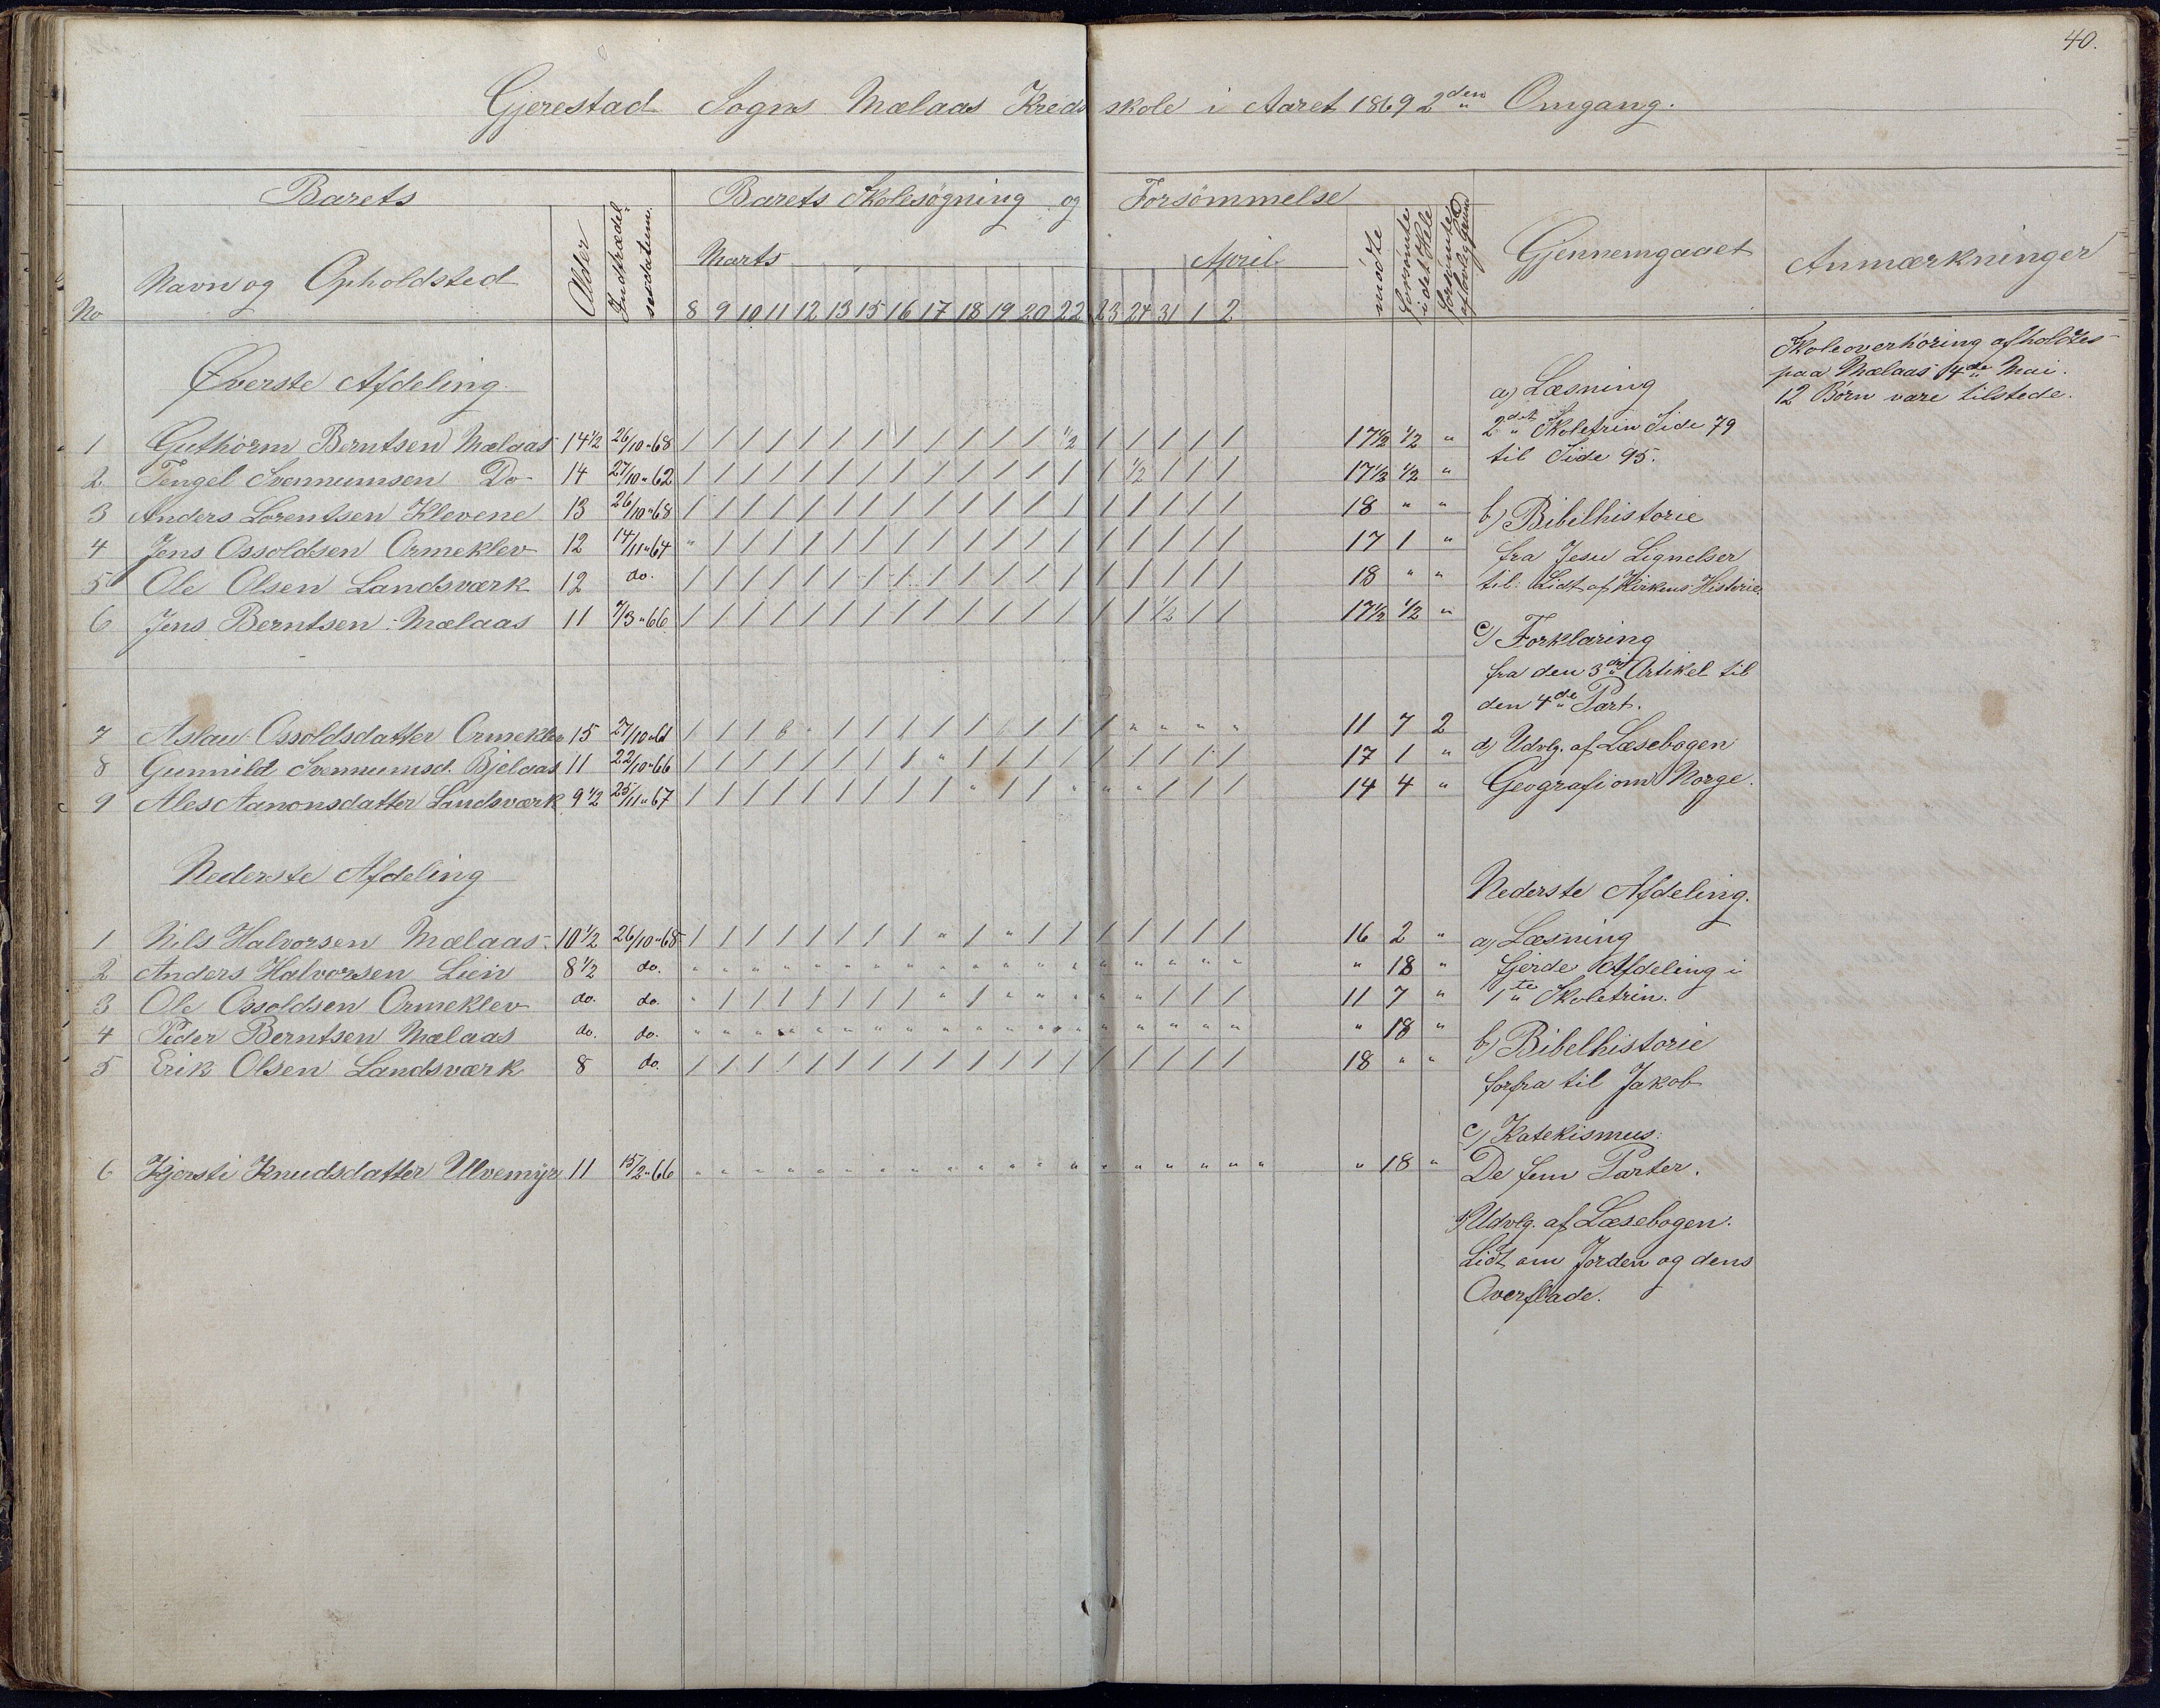 40.
Gjerestad Sogns Mælaas Kredsskole i Aaret 1869 2den Omgang.
Barets
Barets Skolesøgning og Forsømmelse
No
Navn og Opholdsted
Alder
Indtrædelsesdatum.
Marts
April
8 9 10 11 12 13 15 16 17 18 19 20 22 23 24 31 1 2
mødte
forsømte i det Hele
forsømte af lovlig Grund
Gjennemgaaet
Anmærkninger
Skoleoverhøring afholdtes
paa Mælaas 4de Mai.
12 Børn vare tilstede.
Øverste Afdeling
1 Guthorm Berntsen Mælaas 14½ 26/10 68 / / / / / / / / / / / / ½ / / / / / 17½ ½ "
2 Tengel Svennumsen Do 14 27/10 62 / / / / / / / / / / / / / / ½ / / / 17½ ½ "
3 Anders Lorentsen Klevene 13 26/10 68 / / / / / / / / / / / / / / / / / / 18 " "
4 Jens Ossoldsen Ormeklev 12 14/11 64 " / / / / / / / / / / / / / / / / / 17 1 "
5 Ole Olsen Landsværk 12 do. / / / / / / / / / / / / / / / / / / 18 " "
6 Jens Berntsen Mælaas 11 7/3 66 / / / / / / / / / / / / / / / ½ / / 17½ ½ "
7 Aslau Ossoldsdatter Ormeklev 15 27/10 61 11 7 2
8 Gunnild Svennumsd. Bjelaas 11 22/10 66 / / / / / / / / " / / / / / / / / / 17 1 "
9 Ales Aanonsdatter Landsværk 9½ 25/11 67 / / / / / / / / / " / / " " " / / / 14 4 "
a) Læsning
2det Skoletrin Side 79
til Side 95.
b) Bibelhistorie
fra Jesu Lignelser
til: Lidt af Kirkens Historie.
c) Forklaring
fra den 3die Artikel til
den 4de Part.
d) Udvlg. af Læsebogen
Geografi om Norge.
Nederste Afdeling
1 Nils Halvorsen Mælaas 10½ 26/10 68 / / / / / / / / " / " / / / / / / / 16 2 "
2 Anders Halvorsen Lien 8½ do. " " " " " " " " " " " " " " " " " " " 18 "
3 Ole Ossoldsen Ormeklev do. do. " / / / / / / / " / " " " " " / / / 11 7 "
4 Peder Berntsen Mælaas do. do. " " " " " " " " " " " " " " " " " " " 18 "
5 Erik Olsen Landsværk 8 do. / / / / / / / / / / / / / / / / / / 18 " "
6 Kjersti Knudsdatter Ulvemyr 11 15/2 66 " " " " " " " " " " " " " " " " " " " 18 "
Nederste Afdeling.
a) Læsning
fjerde Afdeling i
1te Skoletrin.
b) Bibelhistorie
forfra til Jakob
c) Katekismus:
De fem Parter.
d) Udvlg. af Læsebogen.
Lidt om Jorden og dens
Overflade.